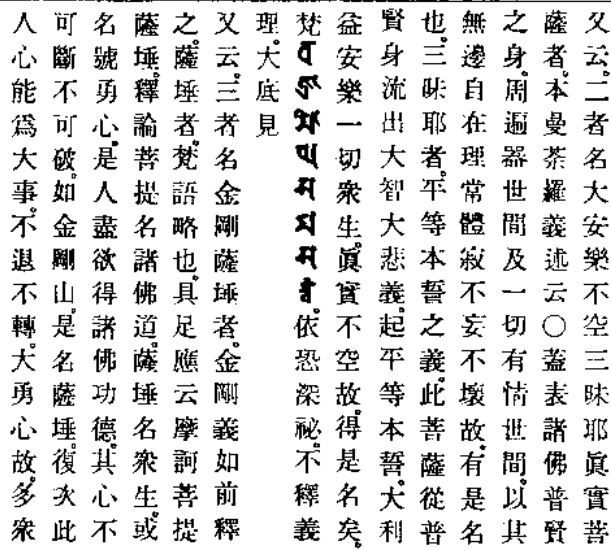 又云。二者名大安樂不空三昧耶眞實菩
薩者。本曼荼羅義述云〇蓋表諸佛普賢
之身。周遍器世間及一切有情世間。以其
無邊自在理常體寂不妄不壞故。有是名
也。三昧耶者。平等本誓之義。此菩薩從普
賢身流出大智大悲義。起平等本誓。大利
益安樂一切衆生。眞實不空故。得是名矣。
梵依恐深祕。不釋義
理。大底見
又云。三者名金剛薩埵者。金剛義如前釋
之。薩埵者。梵語略也。具足應云摩訶菩提
薩埵。釋論菩提名諸佛道。薩埵名衆生。或
名號勇心。是人盡欲得諸佛功德。其心不
可斷不可破。如金剛山。是名薩埵。復次此
人心能爲大事。不退不轉。大勇心故。多衆